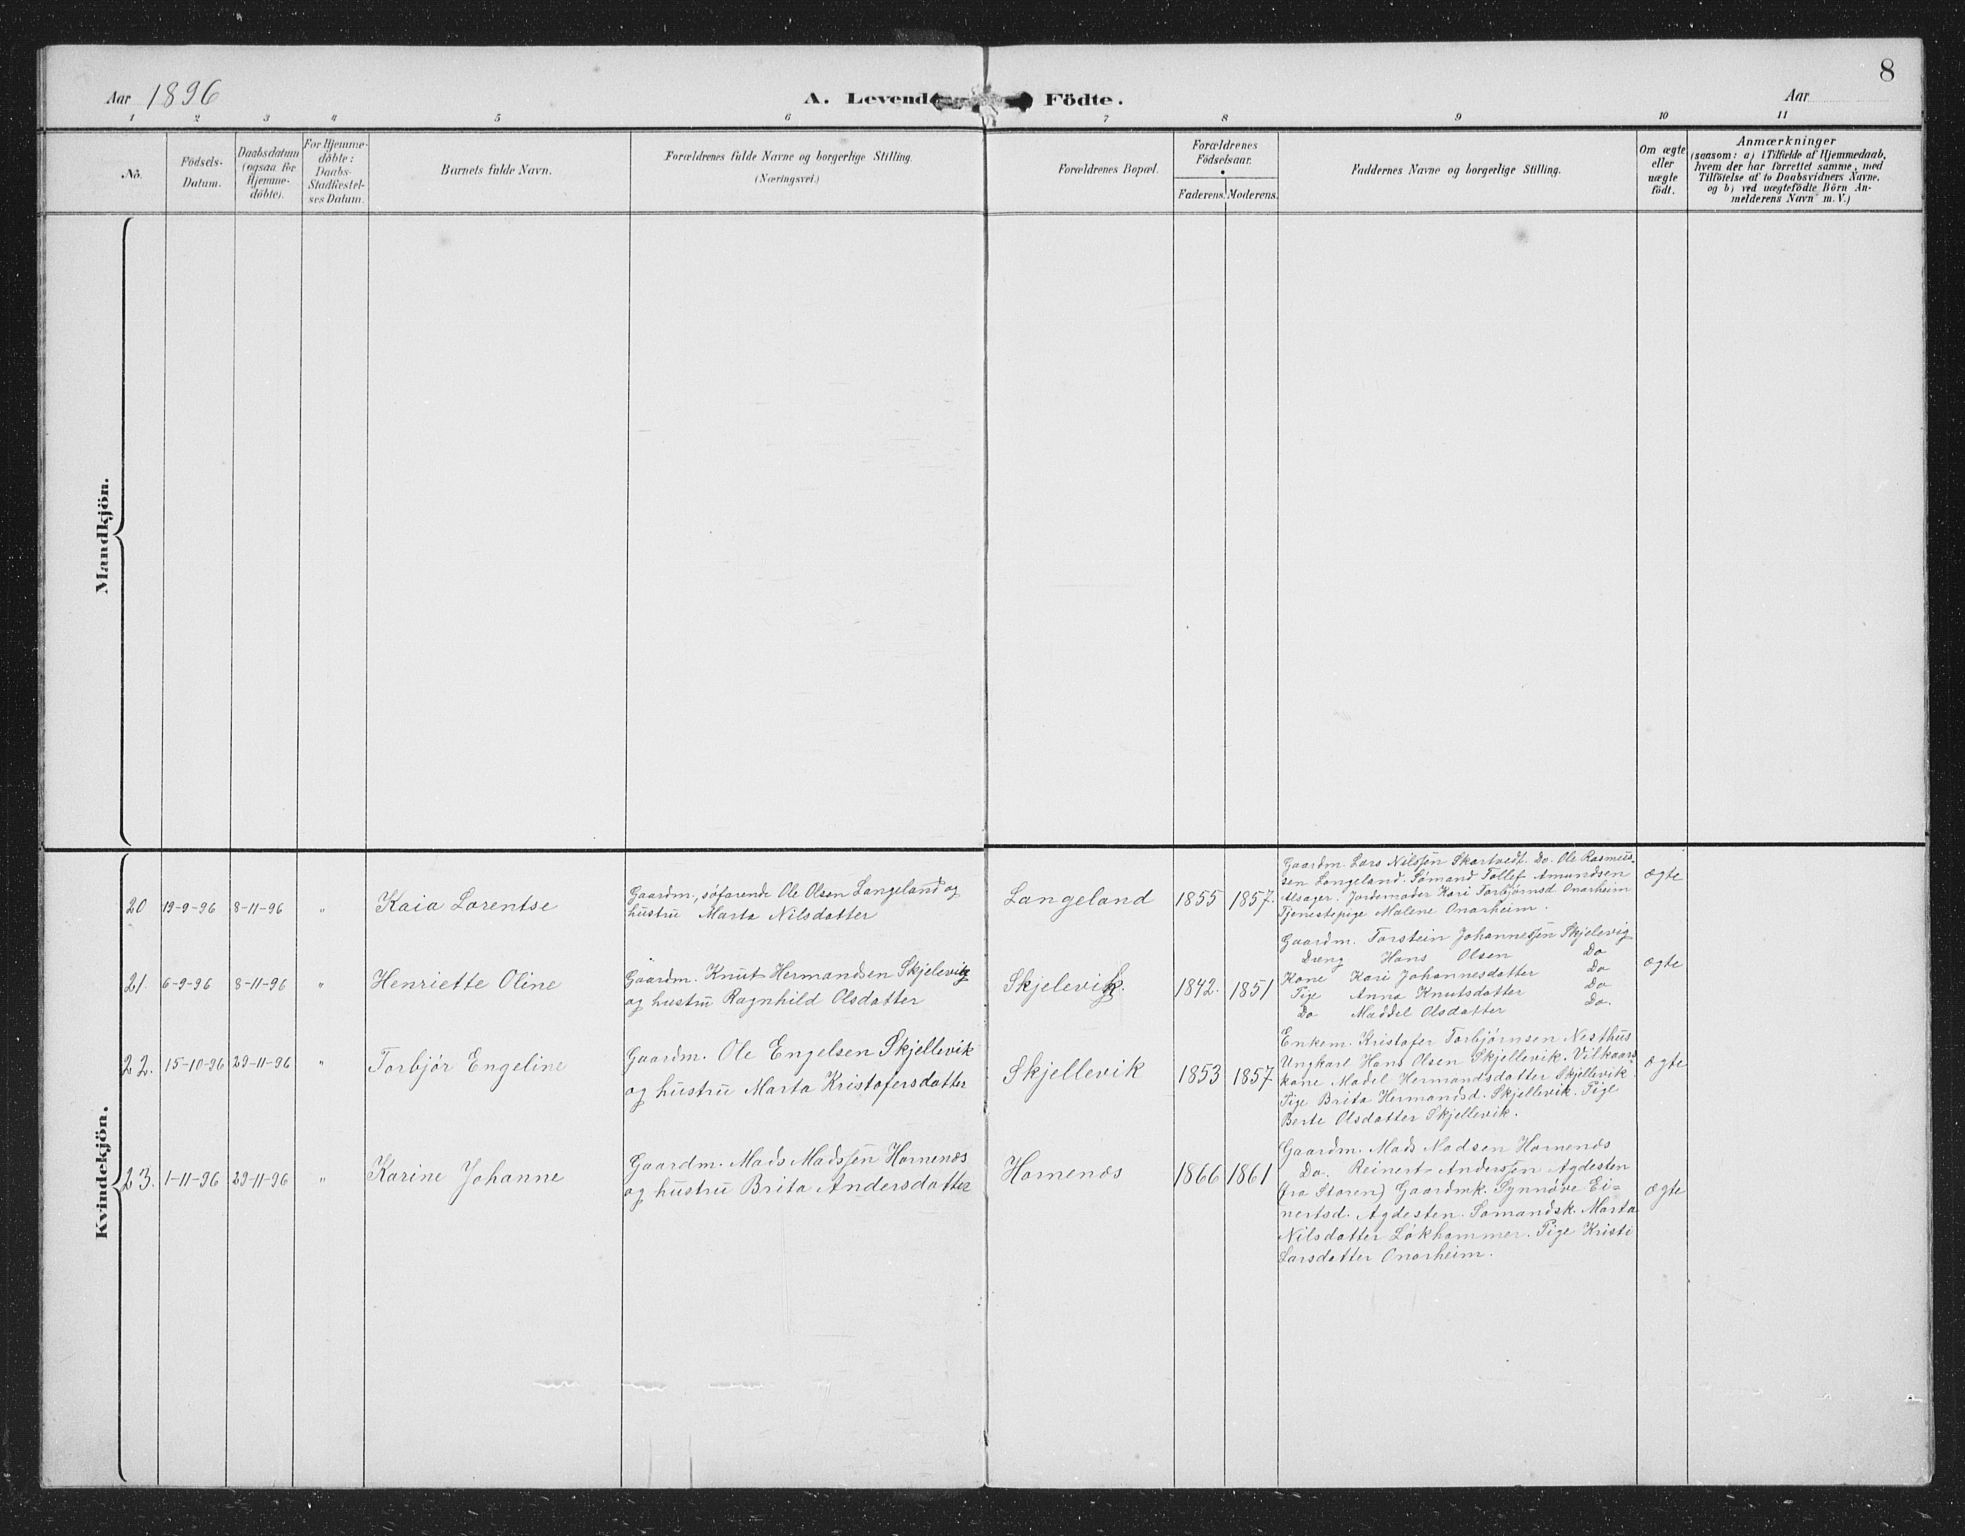 8
Aar 1896
A. Levende Födte.
Aar
1 2 3 4 5 6 7 8 9 10 11
No.
Födsels-
Datum.
Daabsdatum
(ogsaa for
Hjemme-
döbte).
For Hjemme-
döbte:
Daabs-
Stadfæstel-
ses Datum.
Barnets fulde Navn.
Forældrenes fulde Navne og borgerlige Stilling.
(Næringsvei.)
Forældrenes Bopæl.
Forældrenes
Födselsaar.
Faderens. Moderens.
Faddernes Navne og borgerlige Stilling.
Om ægte
eller
uægte
födt.
Anmærkninger
(saasom: a) i Tilfælde af Hjemmedaab,
hvem der har forrettet samme, med
Tilföielse af to Daabsvidners Navne,
og b) ved uægtefödte Börn An-
melderens Navn m. V.)
Mandkjön.
Kvindekjön.
20 19-9-96 8-11-96 " Kaia Lorentse
Gaardm., söfarende Ole Olsen Langeland og
hustru Marta Nilsdatter
Langeland 1855 1857.
Gaardm. Lars Nilssen Skartvedt. Do. Ole Rasmus-
sen Langeland. Sömand Tollef Amundsen
Alsager. Jordemoder Kari Torbjørnsd Onarheim
Tjenestepige Malene Onarheim.
ægte
21. 6-9-96 8-11-96 " Henriette Oline
Gaardm. Knut Hermandsen Skjelevig
og hustru Ragnhild Olsdatter
Skjelevik. 1842. 1851
Gaardm. Torstein Johannessen Skjelevig
Dreng Hans Olsen Do
Kone Kari Johannesdatter Do
Pige Anna Knutsdatter Do
Do Maddel Olsdatter Do.
ægte
22. 15-10-96 29-11-96 " Torbjør Engeline
Gaardm. Ole Engelsen Skjellevik
og hustru Marta Kristofersdatter
Skjellevik 1853 1857
Enkem. Kristofer Torbjørnsen Nesthus
Ungkarl Hans Olsen Skjellevik. Vilkaars-
kone Madel Hermandsdatter Skjellevik
Pige Brita Hermandsd. Skjellevik. Pige
Berte Olsdatter Skjellevik.
ægte
23. 1-11-96 29-11-96 " Karine Johanne
Gaardm. Mads Madssen Hornenæs
og hustru Brita Andersdatter
Hornenæs 1866 1861
Gaardm. Mads Madsen Hornenæs
Do. Reinert Anderssen Agdesten
(fra Storen) Gaardmk. Synnøve Ei-
nertsd. Agdesten. Sömandsk. Marta
Nilsdatter Lökhammer. Pige Kristi
Larsdatter Onarheim.
ægte